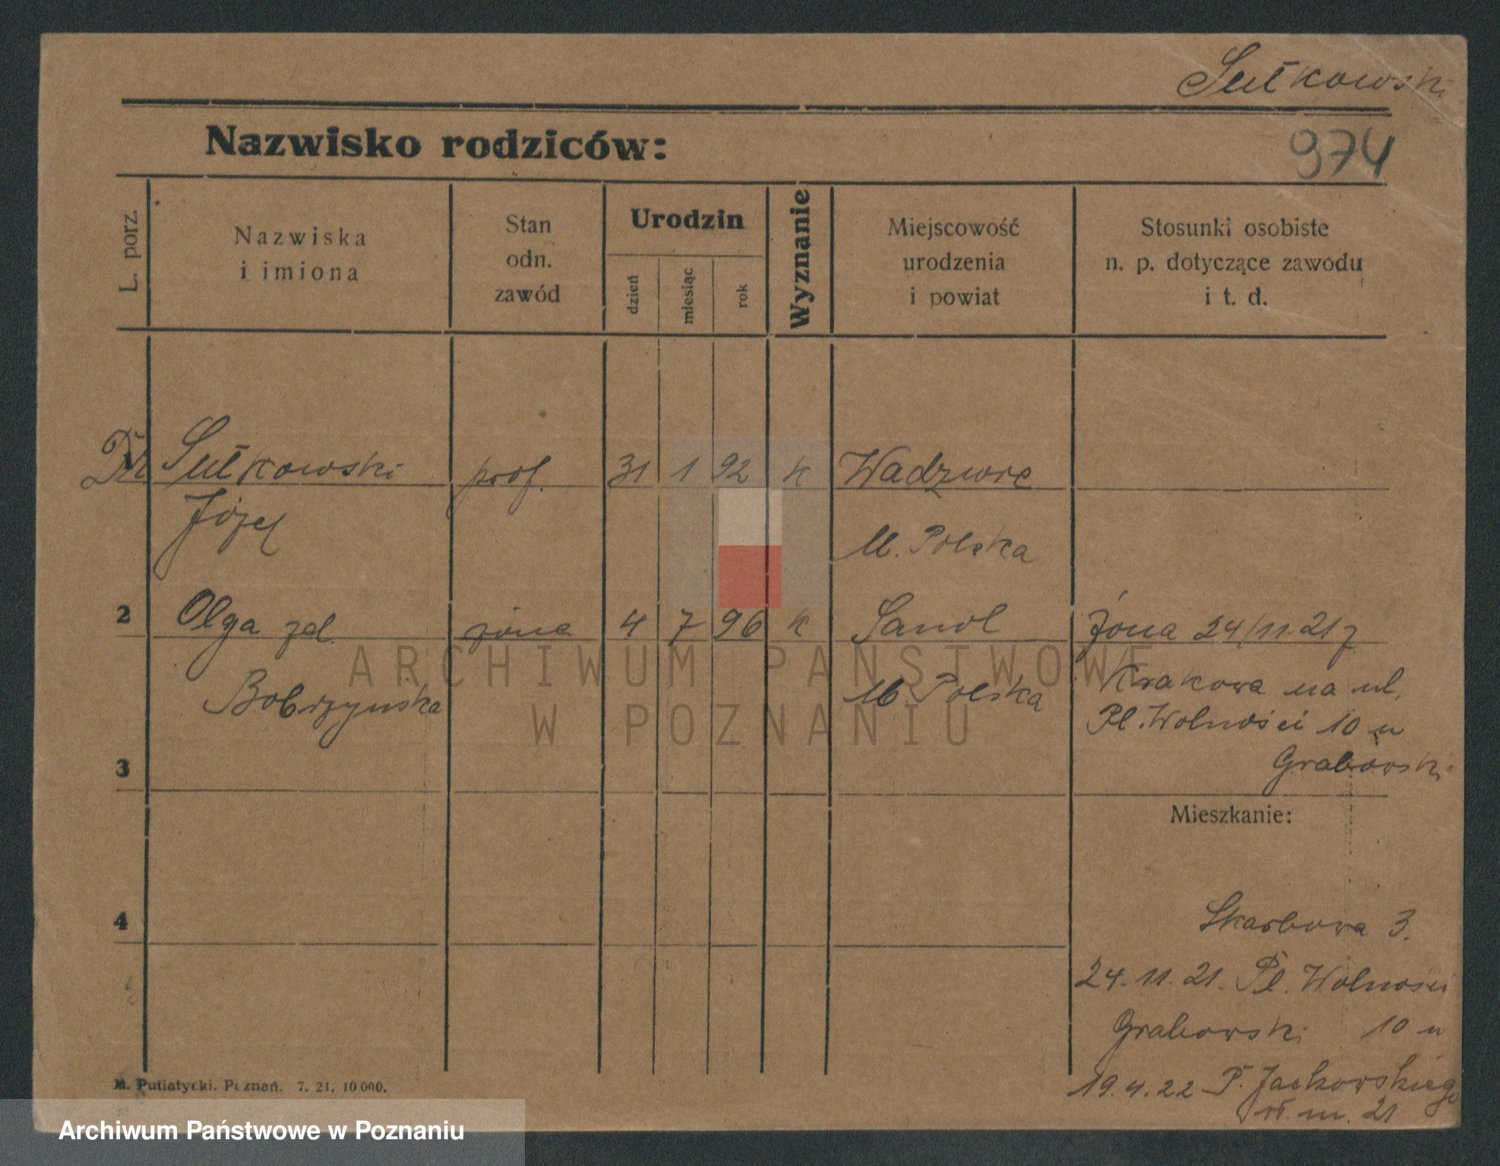 Sułkowski
Nazwisko rodziców:
974
L. porz.
Nazwiska
i imiona
Stan
odn.
zawód
Urodzin
dzień
miesiąc
rok
Wyznanie
Miejscowość
urodzenia
i powiat
Stosunki osobiste
n. p. dotyczące zawodu
i t. d.
Dr Sułkowski prof. 31 1 92 k
Józef
M. Polska
2 Olga zd. żona 4 7 96 k Sanok Żona 24/11.21 z
Bobrzyńska M Polska Krakowa na ul.
Pl. Wolności 10 u
Grabowski
3
Mieszkanie:
4
Skarbowa 3.
24.11.21. Pl. Wolności
Grabowski 10 u
19.4.22 P. Jackowskiego
m. 21
M. Putiatycki. Poznań. 7. 21. 10 000.
ARCHIWUM PAŃSTWOWE
W POZNANIU
Archiwum Państwowe w Poznaniu